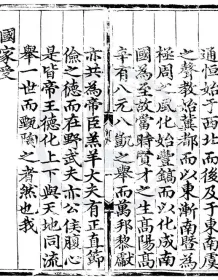 通恆始于西北而後及于東南虞
之聲教始冀都而以東漸南暨為
極周之風化始豐鎬而以化成南
國為至故當時賢才之生高陽高
辛有八元八凱之舉而萬邦黎獻
亦共為帝臣羔羊大夫有正直節
儉之德而在野武夫亦公侯腹心
是皆帝王德化上下與天地同流
舉一世而甄陶之者然也我
國家受